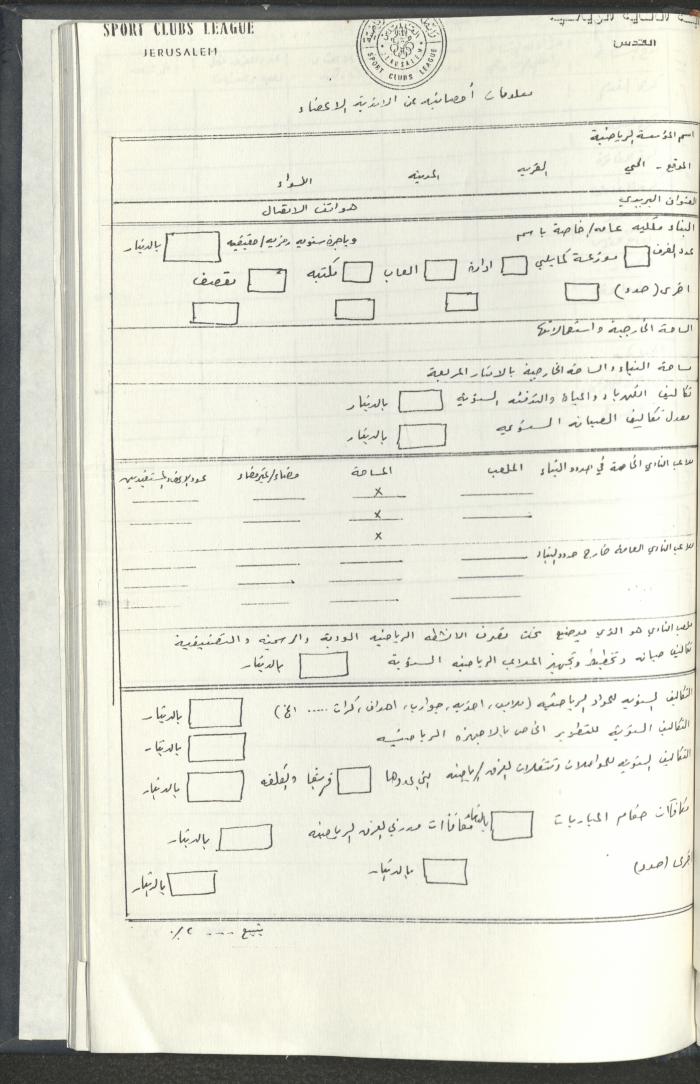 SPORT CLUBS LEAGUE
JERUSALEM
القدس
JERUSALEM
SPORT CLUBS LEAGUE
معلومات احصائية عن الاندية الاعضاء
اسم المؤسسة الرياضية
الموقع - الحي القرية المدينة اللواء
العنوان البريدي هواتف الاتصال
البناء ملكيه عامه/خاصة باسم وباجرة سنويه رمزيه/حقيقيه بالدينار
عدد الغرف موزعة كمايلي ادارة العاب مكتبه مقصف
اخرى (حدد)
الساحة الخارجية واستعمالاتها
مساحة البناء والساحة الخارجية بالامتار المربعة
تكاليف الكهرباء والمياة والتدفئه السنوية بالدينار
معدل تكاليف الصيانه السنوية بالدينار
ملاعب النادي الخاصة في حدود البناء الملعب المساحة مضاء/غير مضاء
x
x
x
ملاعب النادي العامة خارج حدود البناء
ملعب النادي هو الذي يوضع تحت تصرف الانشطه الرياضيه الودية والرسميه والتصنيفية
تكاليف صيانه وتخطيط وتجهيز الملاعب الرياضيه السنوية بالدينار
التكاليف السنويه للمواد الرياضيه (ملابس، احذيه، جوارب، اهداف، كرات ..... الخ) بالدينار
التكاليف السنوية للتطوير الخاص بالاجهزة الرياضيه بالدينار
التكاليف السنويه للمواصلات وتنقلات الفرق الرياضيه التي عددها فريقا والكلفه بالدينار
مكافآت حكام المباريات بالدينار مكافآت مدربي الفرق الرياضيه بالدينار
اخرى (حدد) بالدينار بالدينار
يتبع .... ٢/.